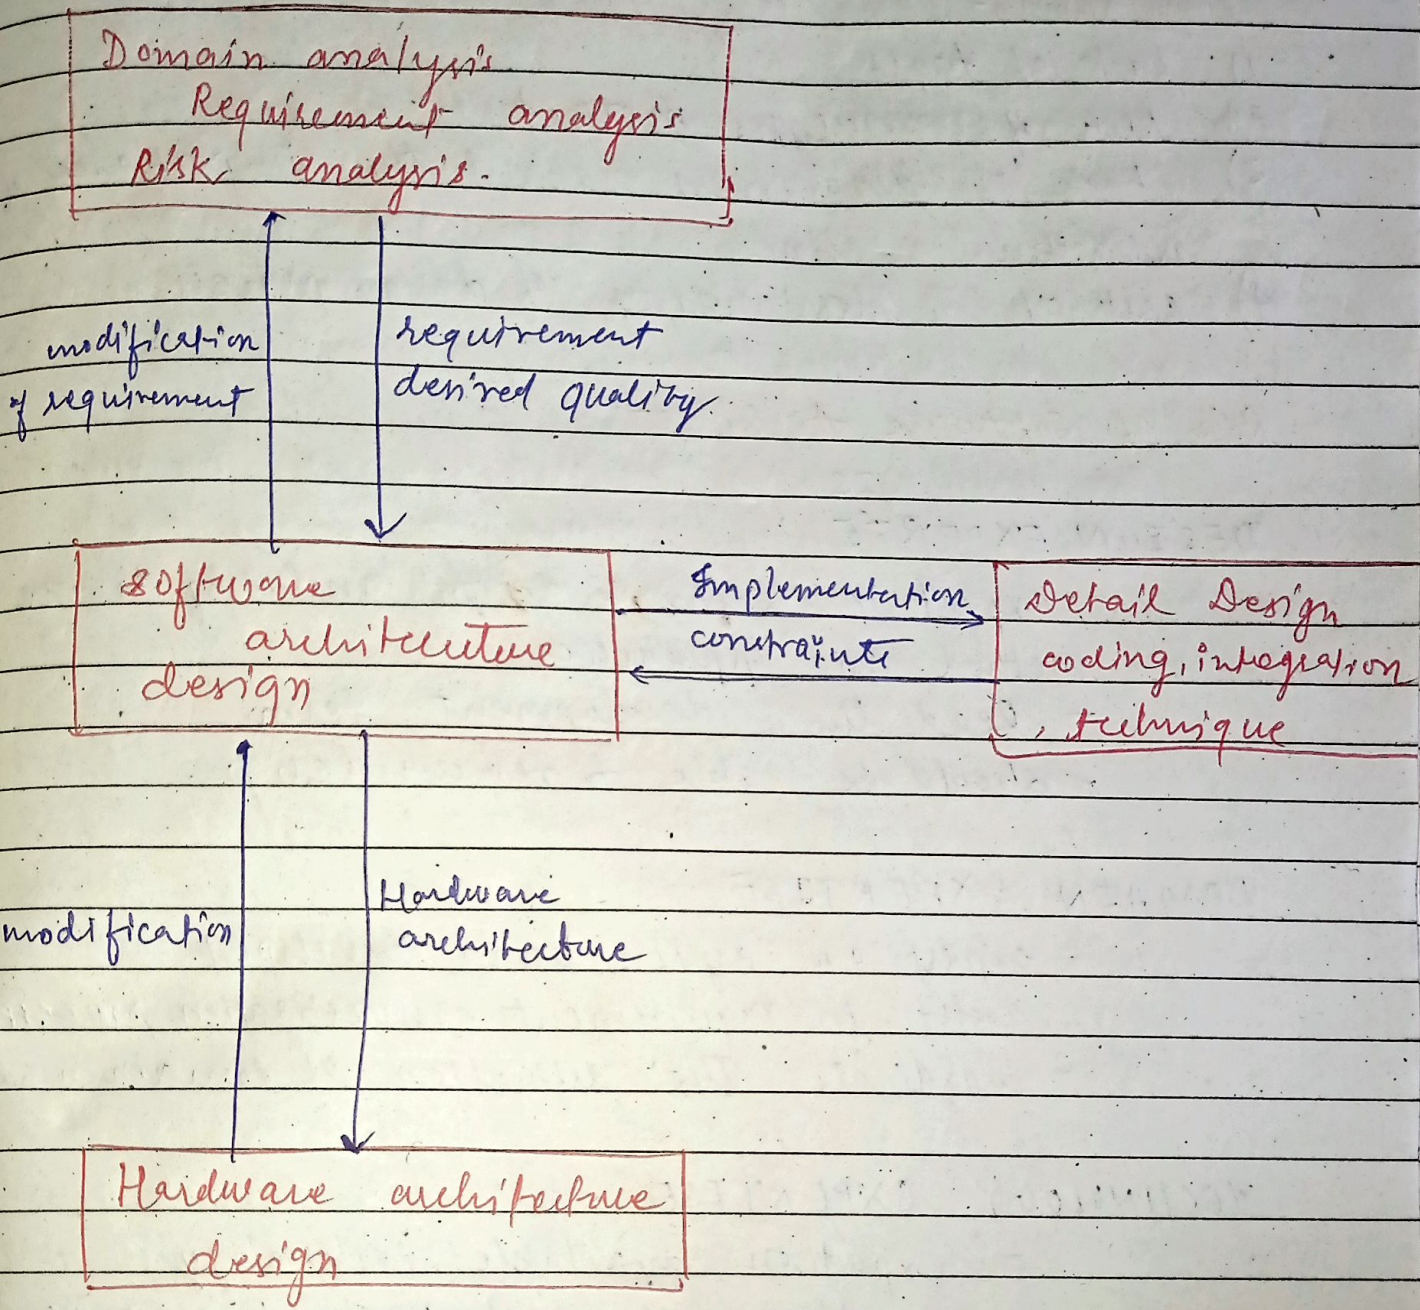 Domain analysis
Requirement analysis
Risk analysis.
modification
of requirement
requirement
desired quality.
software
architecture
design
Implementation
constraints
Detail Design
coding, integration
, technique
modification
Hardware
architecture
Hardware architecture
design